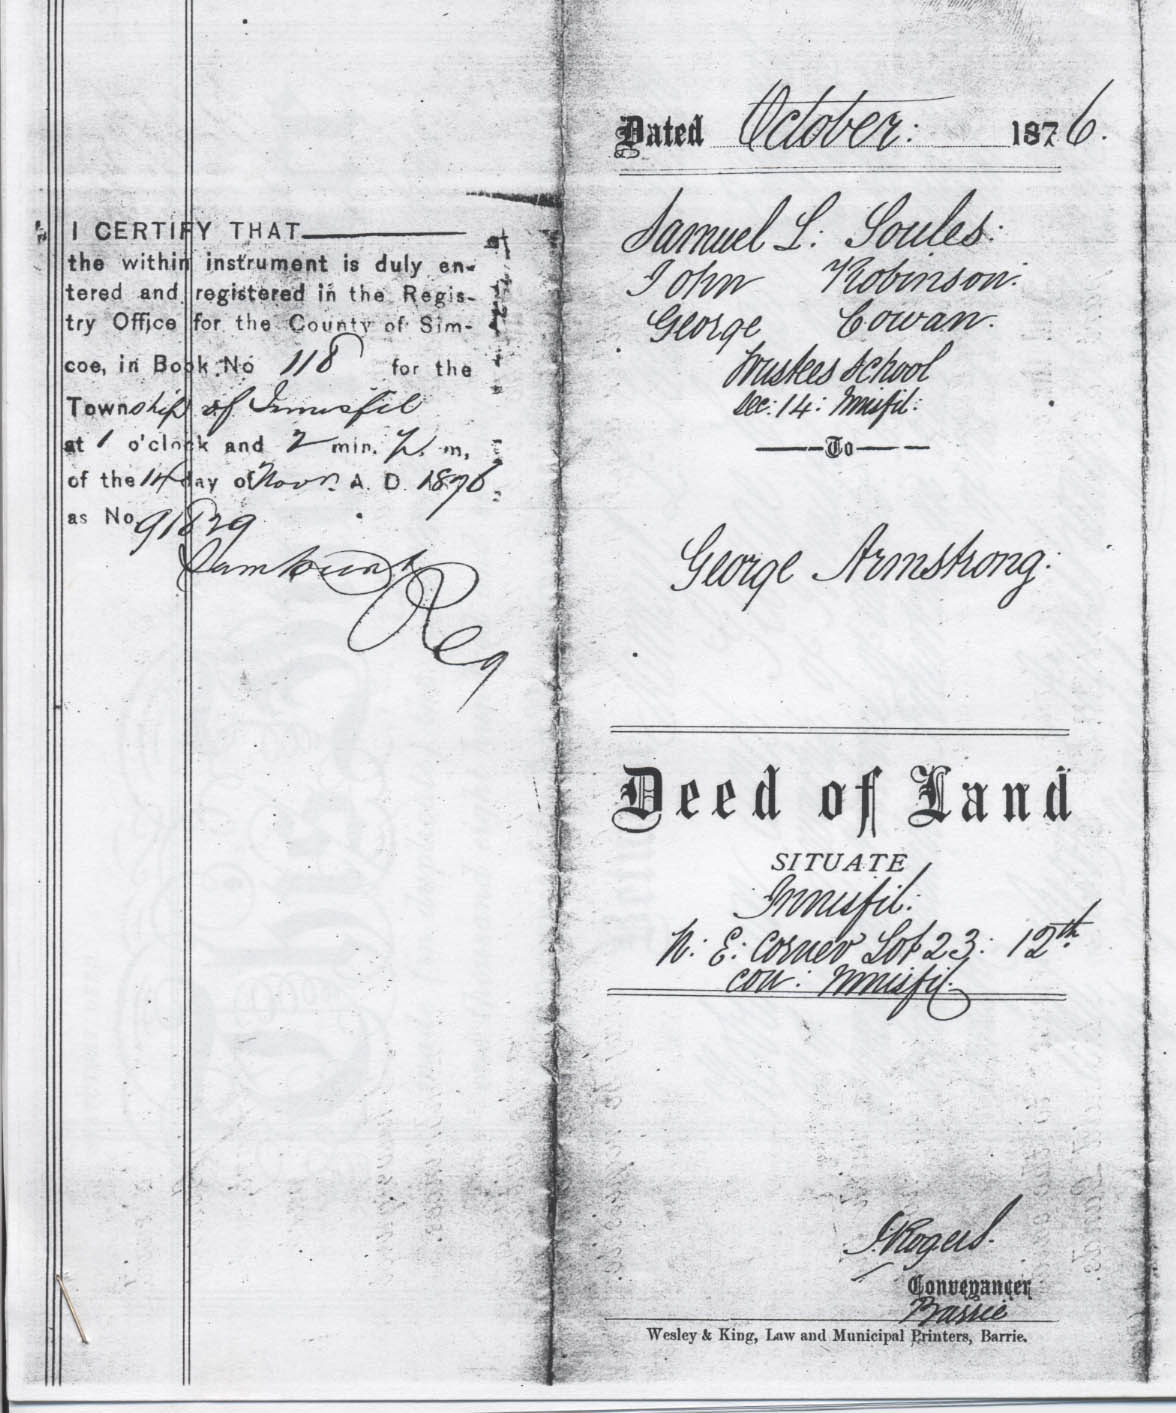 I CERTIFY THAT
the within instrument is duly en-
tered and registered in the Regis-
try Office for the County of Sim-
coe, in Book No 118 for the
Township of Innisfil
at 1 o'clock and 2 min. P. m,
of the 14 day of Novr. A. D. 1876
as No 91829
Reg
Dated October: 1876.
Samuel L: Soules:
John Robinson:
George Cowan.
Trustees School
Sec: 14: Innisfil:
To
George Armstrong:
Deed of Land
SITUATE
Innisfil:
N: E: Corner Lot 23: 12th.
con: Innisfil:
J. Rogers.
Conveyancer
Barrie
Wesley & King, Law and Municipal Printers, Barrie.